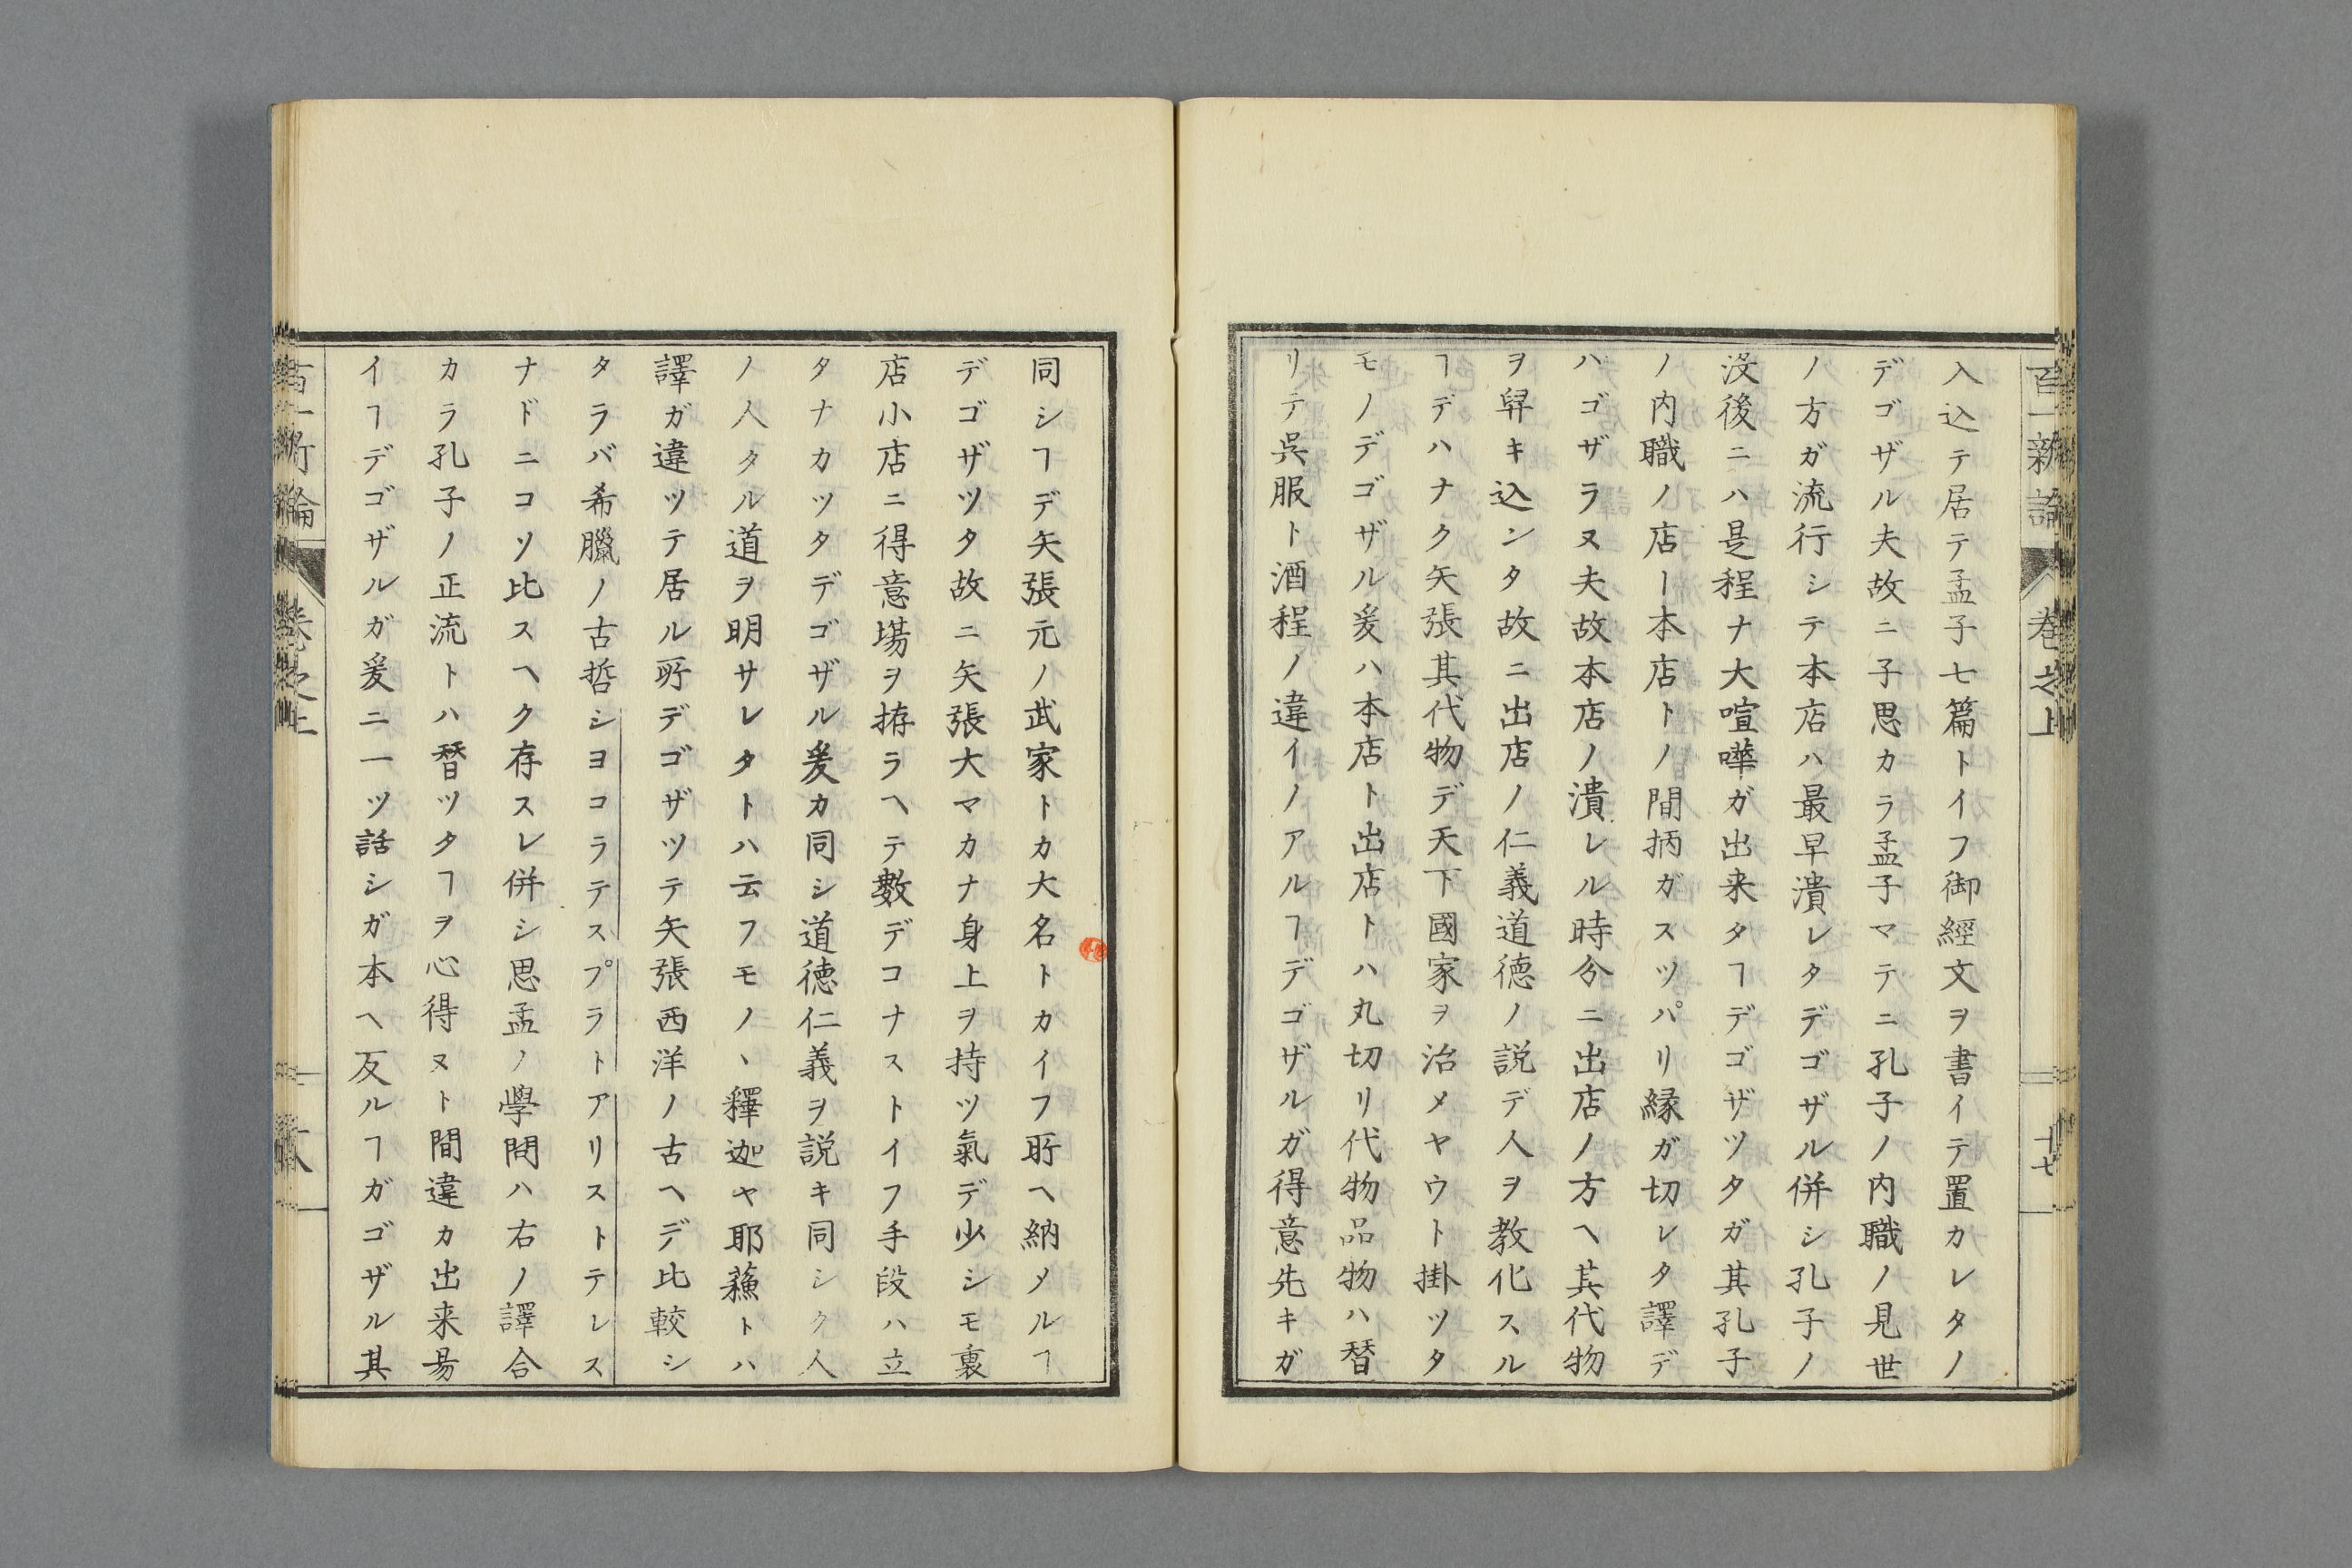 百一新論 巻之上 十七
入込テ居テ孟子七篇トイフ御經文ヲ書イテ置カレタノ
デゴザル夫故ニ子思カラ孟子マテニ孔子ノ内職ノ見世
ノ方ガ流行シテ本店ハ最早潰レタデゴザル併シ孔子ノ
没後ニハ是程ナ大喧嘩ガ出来タヿデゴザツタガ其孔子
ノ内職ノ店ー本店トノ間柄ガスツパリ縁ガ切レタ譯デ
ハゴザラヌ夫故本店ノ潰レル時分ニ出店ノ方ヘ其代物
ヲ舁キ込ンタ故ニ出店ノ仁義道徳ノ説デ人ヲ教化スル
ヿデハナク矢張其代物デ天下國家ヲ治メヤウト掛ツタ
モノデゴザル爰ハ本店ト出店トハ丸切リ代物品物ハ替
リテ呉服ト酒程ノ違イノアルヿデゴザルガ得意先キガ
同シヿデ矢張元ノ武家トカ大名トカイフ所ヘ納メルヿ
デゴザツタ故ニ矢張大マカナ身上ヲ持ツ氣デ少シモ裏
店小店ニ得意塲ヲ拵ラヘテ數デコナストイフ手段ハ立
タナカツタデゴザル爰カ同シ道徳仁義ヲ説キ同シク人
ノ人タル道ヲ明サレタトハ云フモノヽ釋迦ヤ耶蘇トハ
譯ガ違ツテ居ル所デゴザツテ矢張西洋ノ古ヘデ比較シ
タラバ希臘ノ古哲シヨコラテスプラトアリストテレス
ナドニコソ比スヘク存スレ併シ思孟ノ學問ハ右ノ譯合
カラ孔子ノ正流トハ替ツタヿヲ心得ヌト間違カ出来易
イヿデゴザルガ爰ニ一ツ話シガ本ヘ反ルヿガゴザル其
百一新論 巻之上